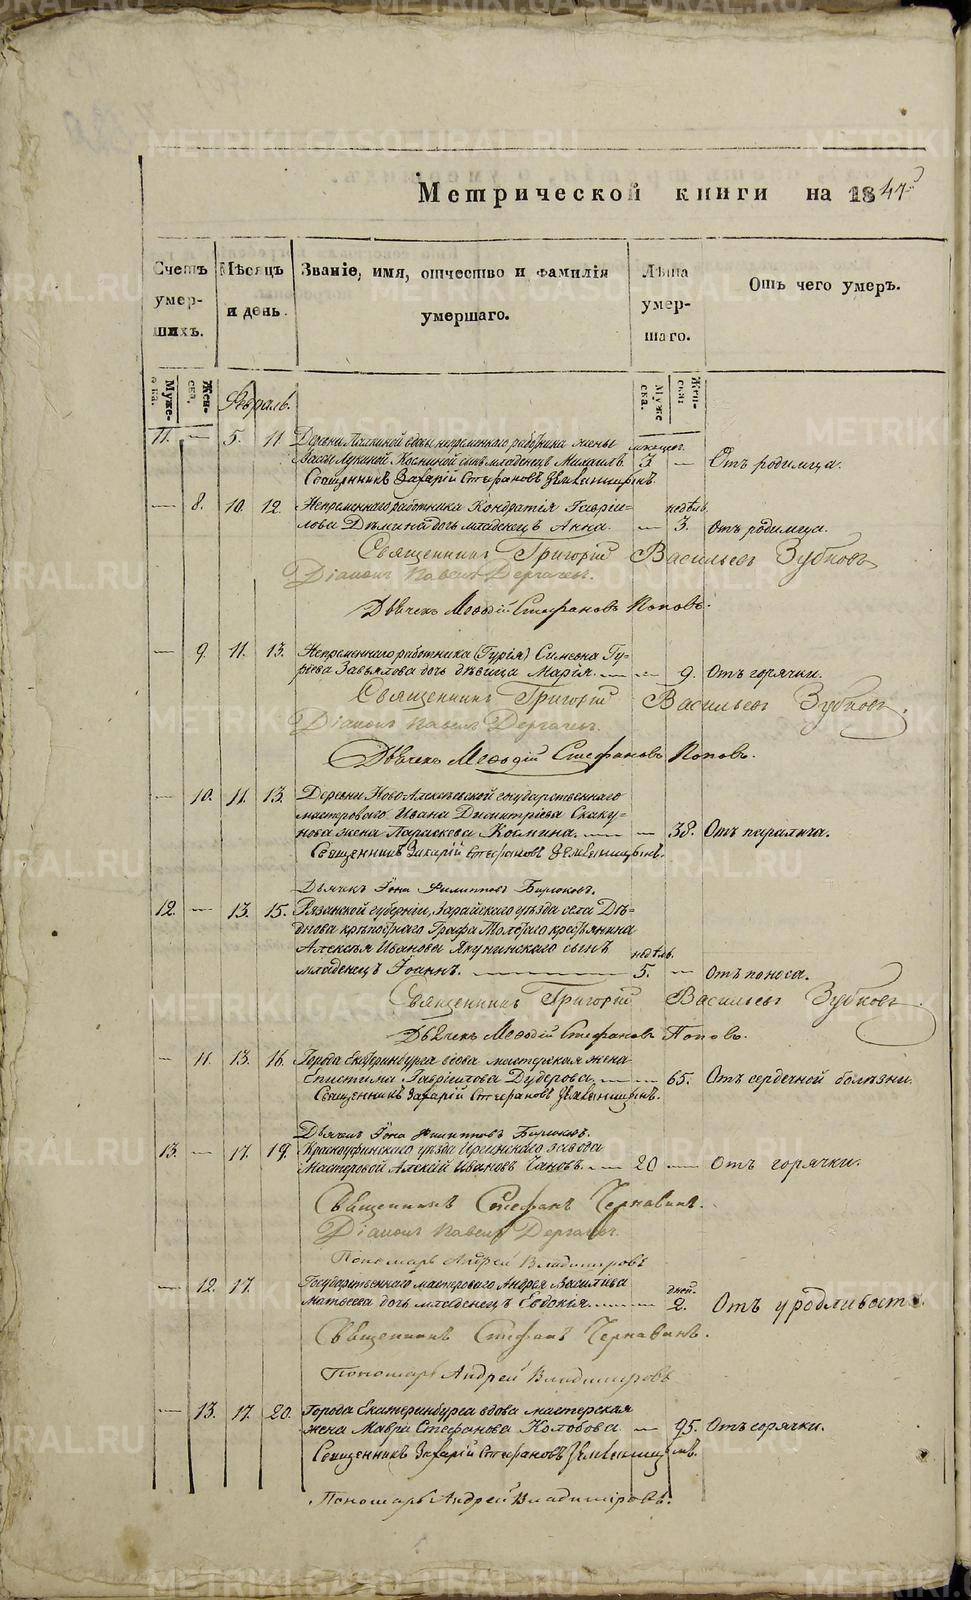 Метрической книги на 1847 г.
Счетъ умер-шихъ.
Мѣсяцъ и день.
Званіе, имя, отчество и фамилія умершаго.
Лѣта умер-шаго.
Отъ чего умеръ.
Муже-ска.
Жен-ска.
Муже-ска.
Жен-ска.
Февраль.
11. — 5. 11 Деревни непременнаго работника жены месяцов.
Вассы Лукиной Косниной сынъ младенецъ Михаилъ. 3 — Отъ родимца.
Священникъ Захарій Стефановъ Земляницынъ.
— 8. 10. 12. Непременнаго работника Кондратія Гавріи- недѣль.
лова Демина дочь младенецъ Анна. — 3. Отъ родимца.
Священникъ Григорій Васильевъ Зубковъ
Діаконъ Павелъ Дергачевъ.
Дьячекъ Меѳодій Стефановъ Поповъ.
— 9. 11. 13. Непременнаго работника (Гурія) Симеона Гу-
рьева Завьялова дочь дѣвица Марія. — — 9. Отъ горячки.
Священникъ Григорій Васильевъ Зубковъ.
Діаконъ Павелъ Дергачевъ.
Дьячекъ Меѳодій Стефановъ Поповъ.
— 10. 11. 13. Деревни Ново Алексѣевской государственнаго
мастероваго Ивана Димитріева Скаку-
нова жена Параскева Космина. — — 38. Отъ паралича.
Священникъ Захарій Стефановъ Земляницынъ.
Дьячекъ Іона Филипповъ Бирюковъ.
12. — 13. 15. Рязанской губерніи, Зарайскаго уѣзда села Дѣ-
днова крѣпостнаго Графа крестьянина
Алексѣя Иванова Якунинскаго сынъ недѣль.
младенецъ Іоаннъ. — 5. — Отъ поноса.
Священникъ Григорій Васильевъ Зубковъ.
Дьячекъ Меѳодій Стефановъ Поповъ.
— 11. 13. 16. Города Екатеринбурга вдова мастерская жена
Епистима Гаврилова Дудерова. — — 65. Отъ сердечной болѣзни.
Священникъ Захарій Стефановъ Земляницынъ.
Дьячекъ Іона Филипповъ Бирюковъ.
13. — 17. 19. Красноуфимскаго уѣзда Иргинскаго завода
Мастеровой Алексій Ивановъ — 20 — Отъ горячки.
Священникъ Стефанъ Чернавинъ.
Діаконъ Павелъ Дергачевъ.
Пономарь Андрей Владимировъ
— 12. 17. Государственнаго мастероваго Андрея Васильева дней.
Матвеева дочь младенецъ Евдокія. — — 2. Отъ уродливости.
Священникъ Стефанъ Чернавинъ.
Пономарь Андрей Владимировъ
— 13. 17. 20. Города Екатеринбурга вдова мастерская
жена Мавра Стефанова Колобова. — 95. Отъ горячки.
Священникъ Захарій Стефановъ Земляницынъ.
Пономарь Андрей Владиміровъ.
METRIKI.GASO-URAL.RU